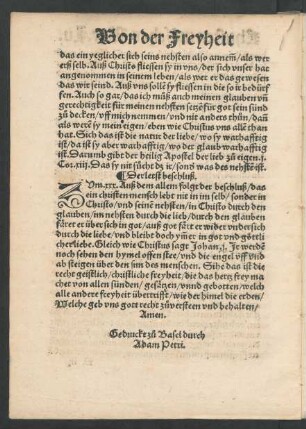 Von der Freyheit
das ein yeglicher sich seins nehsten also annem̃/als wer
erß selb. Auß Christo fliessen sy in vns/der sich vnser hat
angenommen in seinem leben/als wer er das gewesen
das wir seind. Auß vns solle̅ sy fliessen in die so ir bedürf
fen. Auch so gar/das ich můß auch meinen glauben vn̅
gerechtigkeit für meinen nehsten setze̅ für got sein sünd
zů decken/vff mich nemmen/vnd nit anders thůn/dan̅
als were̅ sy mein eigen/eben wie Christus vns alle̅ than
hat. Sich das ist die natur der liebe/wo sy warhafftig
ist/da ist sy aber warhafftig/wo der glaub warhafftig
ist. Darumb gibt der heilig Apostel der lieb zů eigen.j.
Cor.xiij. Das sy nit sůcht dz ir/sond̕ was des nehste̅ ist.
¶ Der letst beschluß.
Zom.xxx. Auß dem allem folgt der beschluß/das
ein christen mensch lebt nit in im selb/sonder in
Christo/vnd seine̅ nehsten/in Christo durch den
glauben/im nehsten durch die lieb/durch den glauben
färet er über sich in got/auß got färt er wider vnder sich
durch die liebe/vnd bleibt doch ym̅er in got vnd göttli
cher liebe. Gleich wie Christus sagt Johan.j. Ir werde̅
noch sehen den hymel offen ston/vnd die engel vff vnd
ab steigen über den sun des menschen. Sihe das ist die
recht geistlich/christliche freyheit/die das hertz frey ma
chet von allen sünden/gesätzen/vnnd gebotten/welch
alle andere freyheit übertrifft/wie der himel die erden/
Welche geb vns gott recht zů versteen vnd behalten/
Amen.
Gedruckt zů Basel durch
Adam Petri.